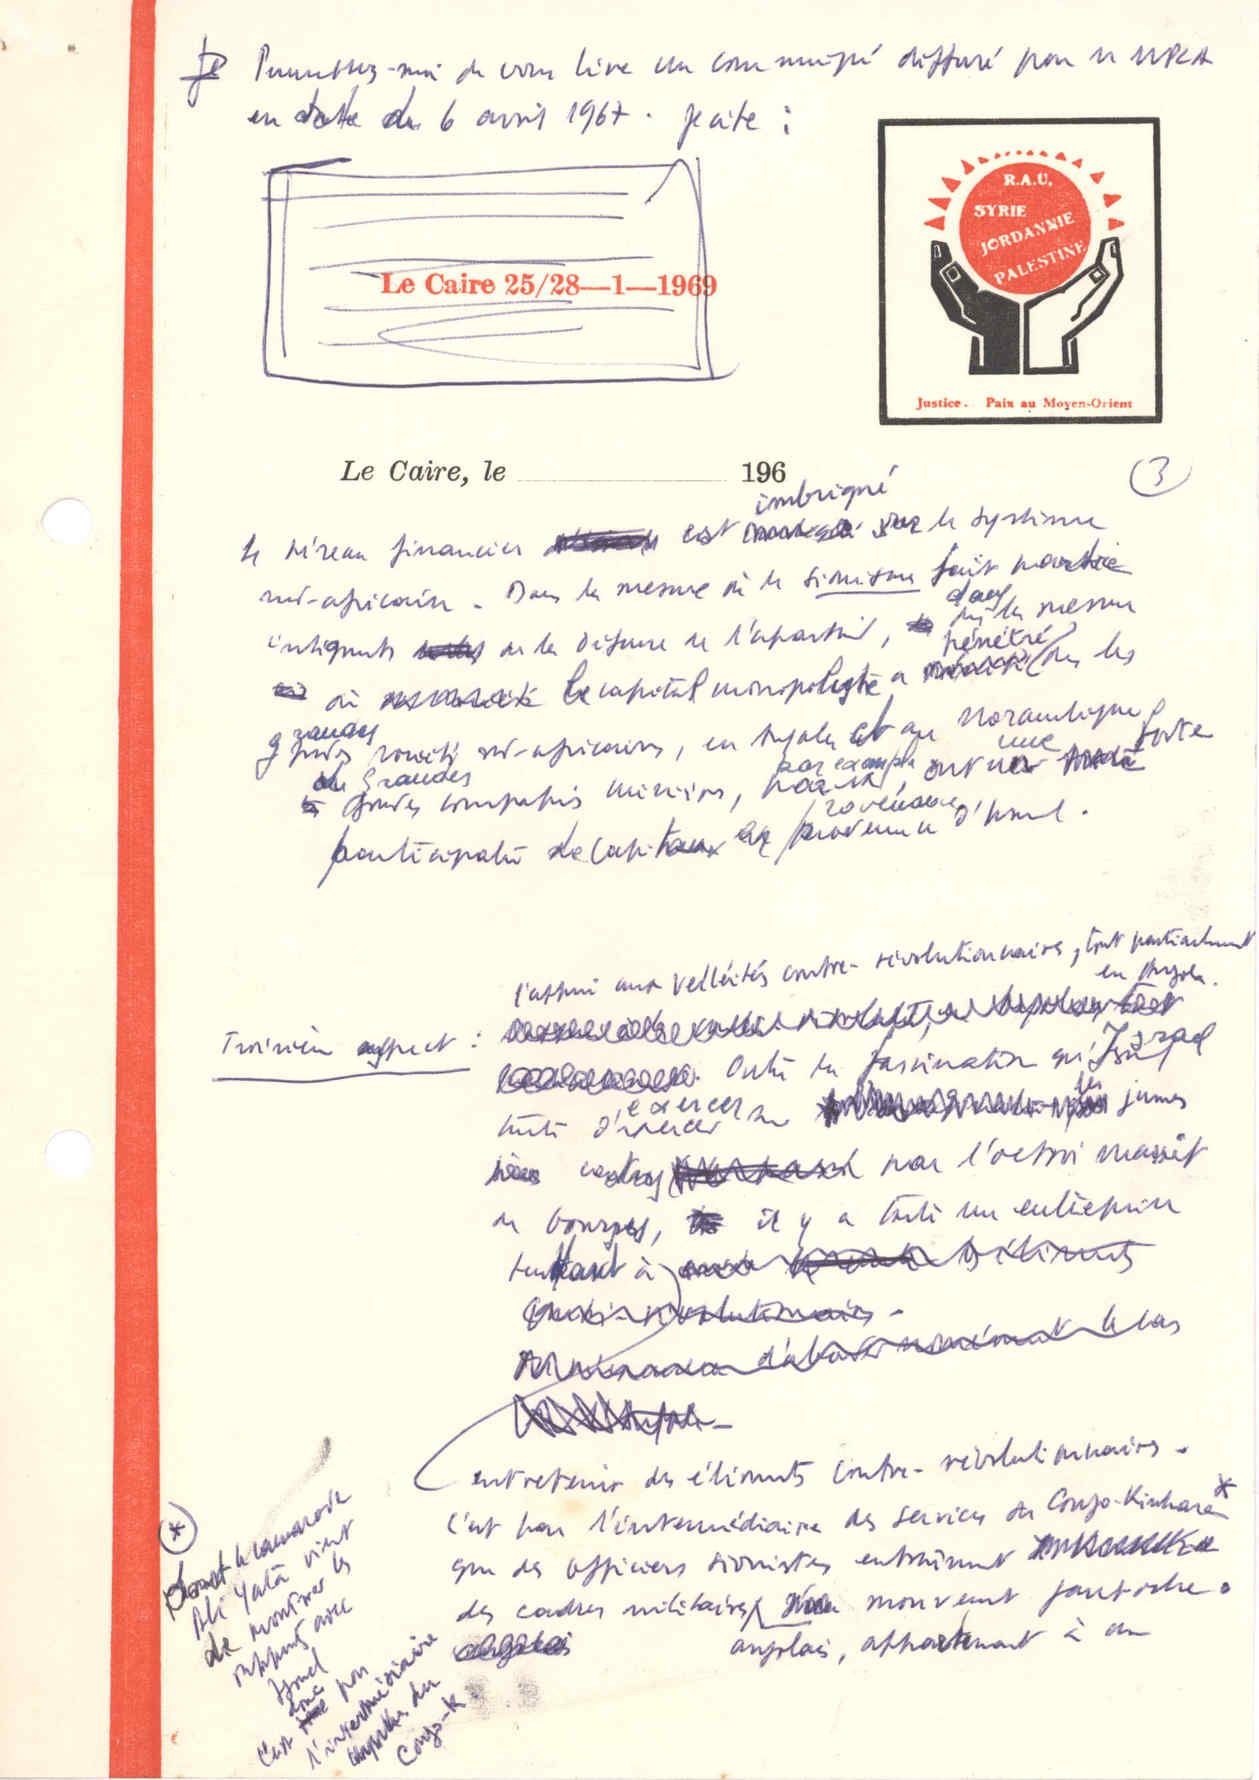 Permettez-moi de vous lire un communiqué diffusé par le MPLA
en date du 6 avril 1967. Je cite :
R.A.U.
SYRIE
JORDANNIE
PALESTINE
Justice. Paix au Moyen-Orient
Le Caire 25/28—1—1969
Le Caire, le 196
3
imbriqué
le réseau financier est le système
sud-africain. Dans la mesure où le sionisme fait partie
dans
intégrante de la défense de l'apartheid, la mesure
pénétré
où le capital monopoliste a les
grandes
sociétés sud-africaines, en Angola et au Mozambique
une forte
de Grandes par exemple
compagnies minières, ont
provenance
participation de capitaux en provenance d'Israël.
l'appui aux velléités contre-révolutionnaires, tout particulièrement
en Angola.
Troisième aspect :
Outre la fascination qu'Israël
exercer les
tente d'exercer sur jeunes
cadres par l'octroi massif
de bourses, il y a toute une entreprise
tendant à les éléments
contre-révolutionnaires.
le cas
entretenir des éléments contre-révolutionnaires.
C'est par l'intermédiaire des services du Congo-Kinshasa *
que des officiers sionistes entraînent
des cadres militaires mouvement fantoche.
angolais, appartenant à un
*
le camarade
Ali Yata vient
de montrer les
rapports avec
Israel
donc
C'est par
l'intermédiaire
du
Congo-K